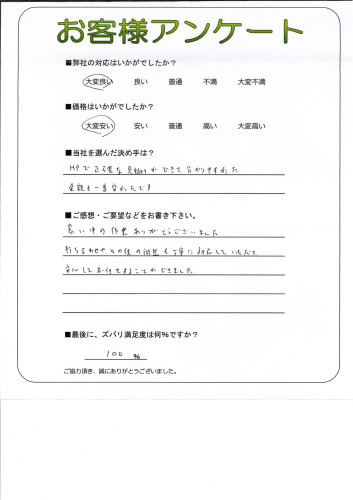 お客様アンケート
■弊社の対応はいかがでしたか？
大変良い 良い 普通 不満 大変不満
■価格はいかがでしたか？
大変安い 安い 普通 高い 大変高い
■当社を選んだ決め手は？
HPで正確な見積りができて分かりやすかった
金額も一番安かったです
■ご感想・ご要望などをお書き下さい。
暑い中の作業ありがとうございました
打ち合わせやその後の対応も丁寧に対応していただき
安心してお任せすることができました
■最後に、ズバリ満足度は何％ですか？
100 %
ご協力頂き、誠にありがとうございました。